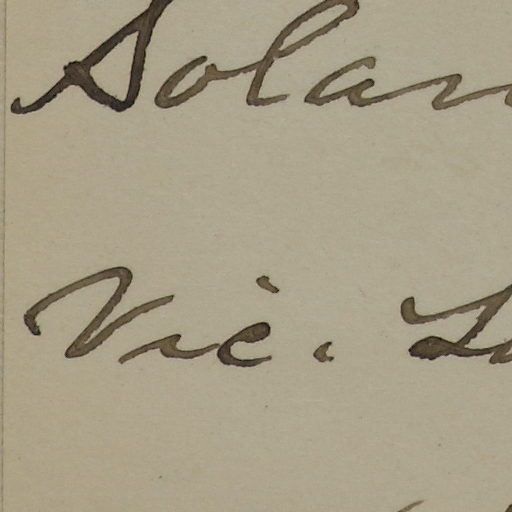 Solan
Vic.